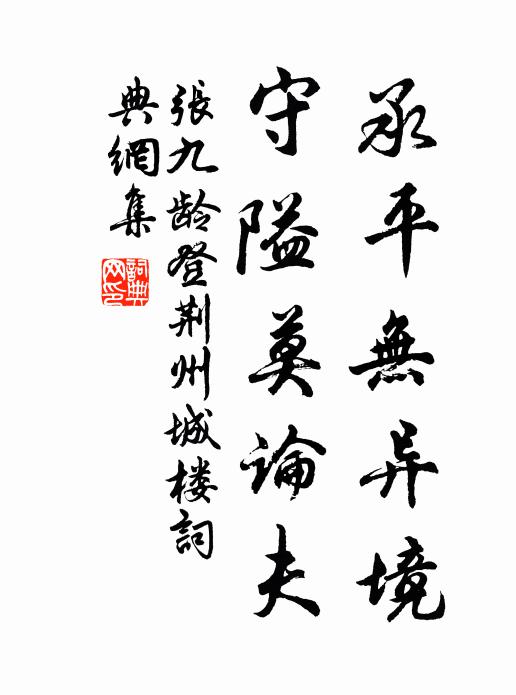 承平無异境
守隘莫論夫
張九龄登荆州城楼詞
典網集
詞典
网印